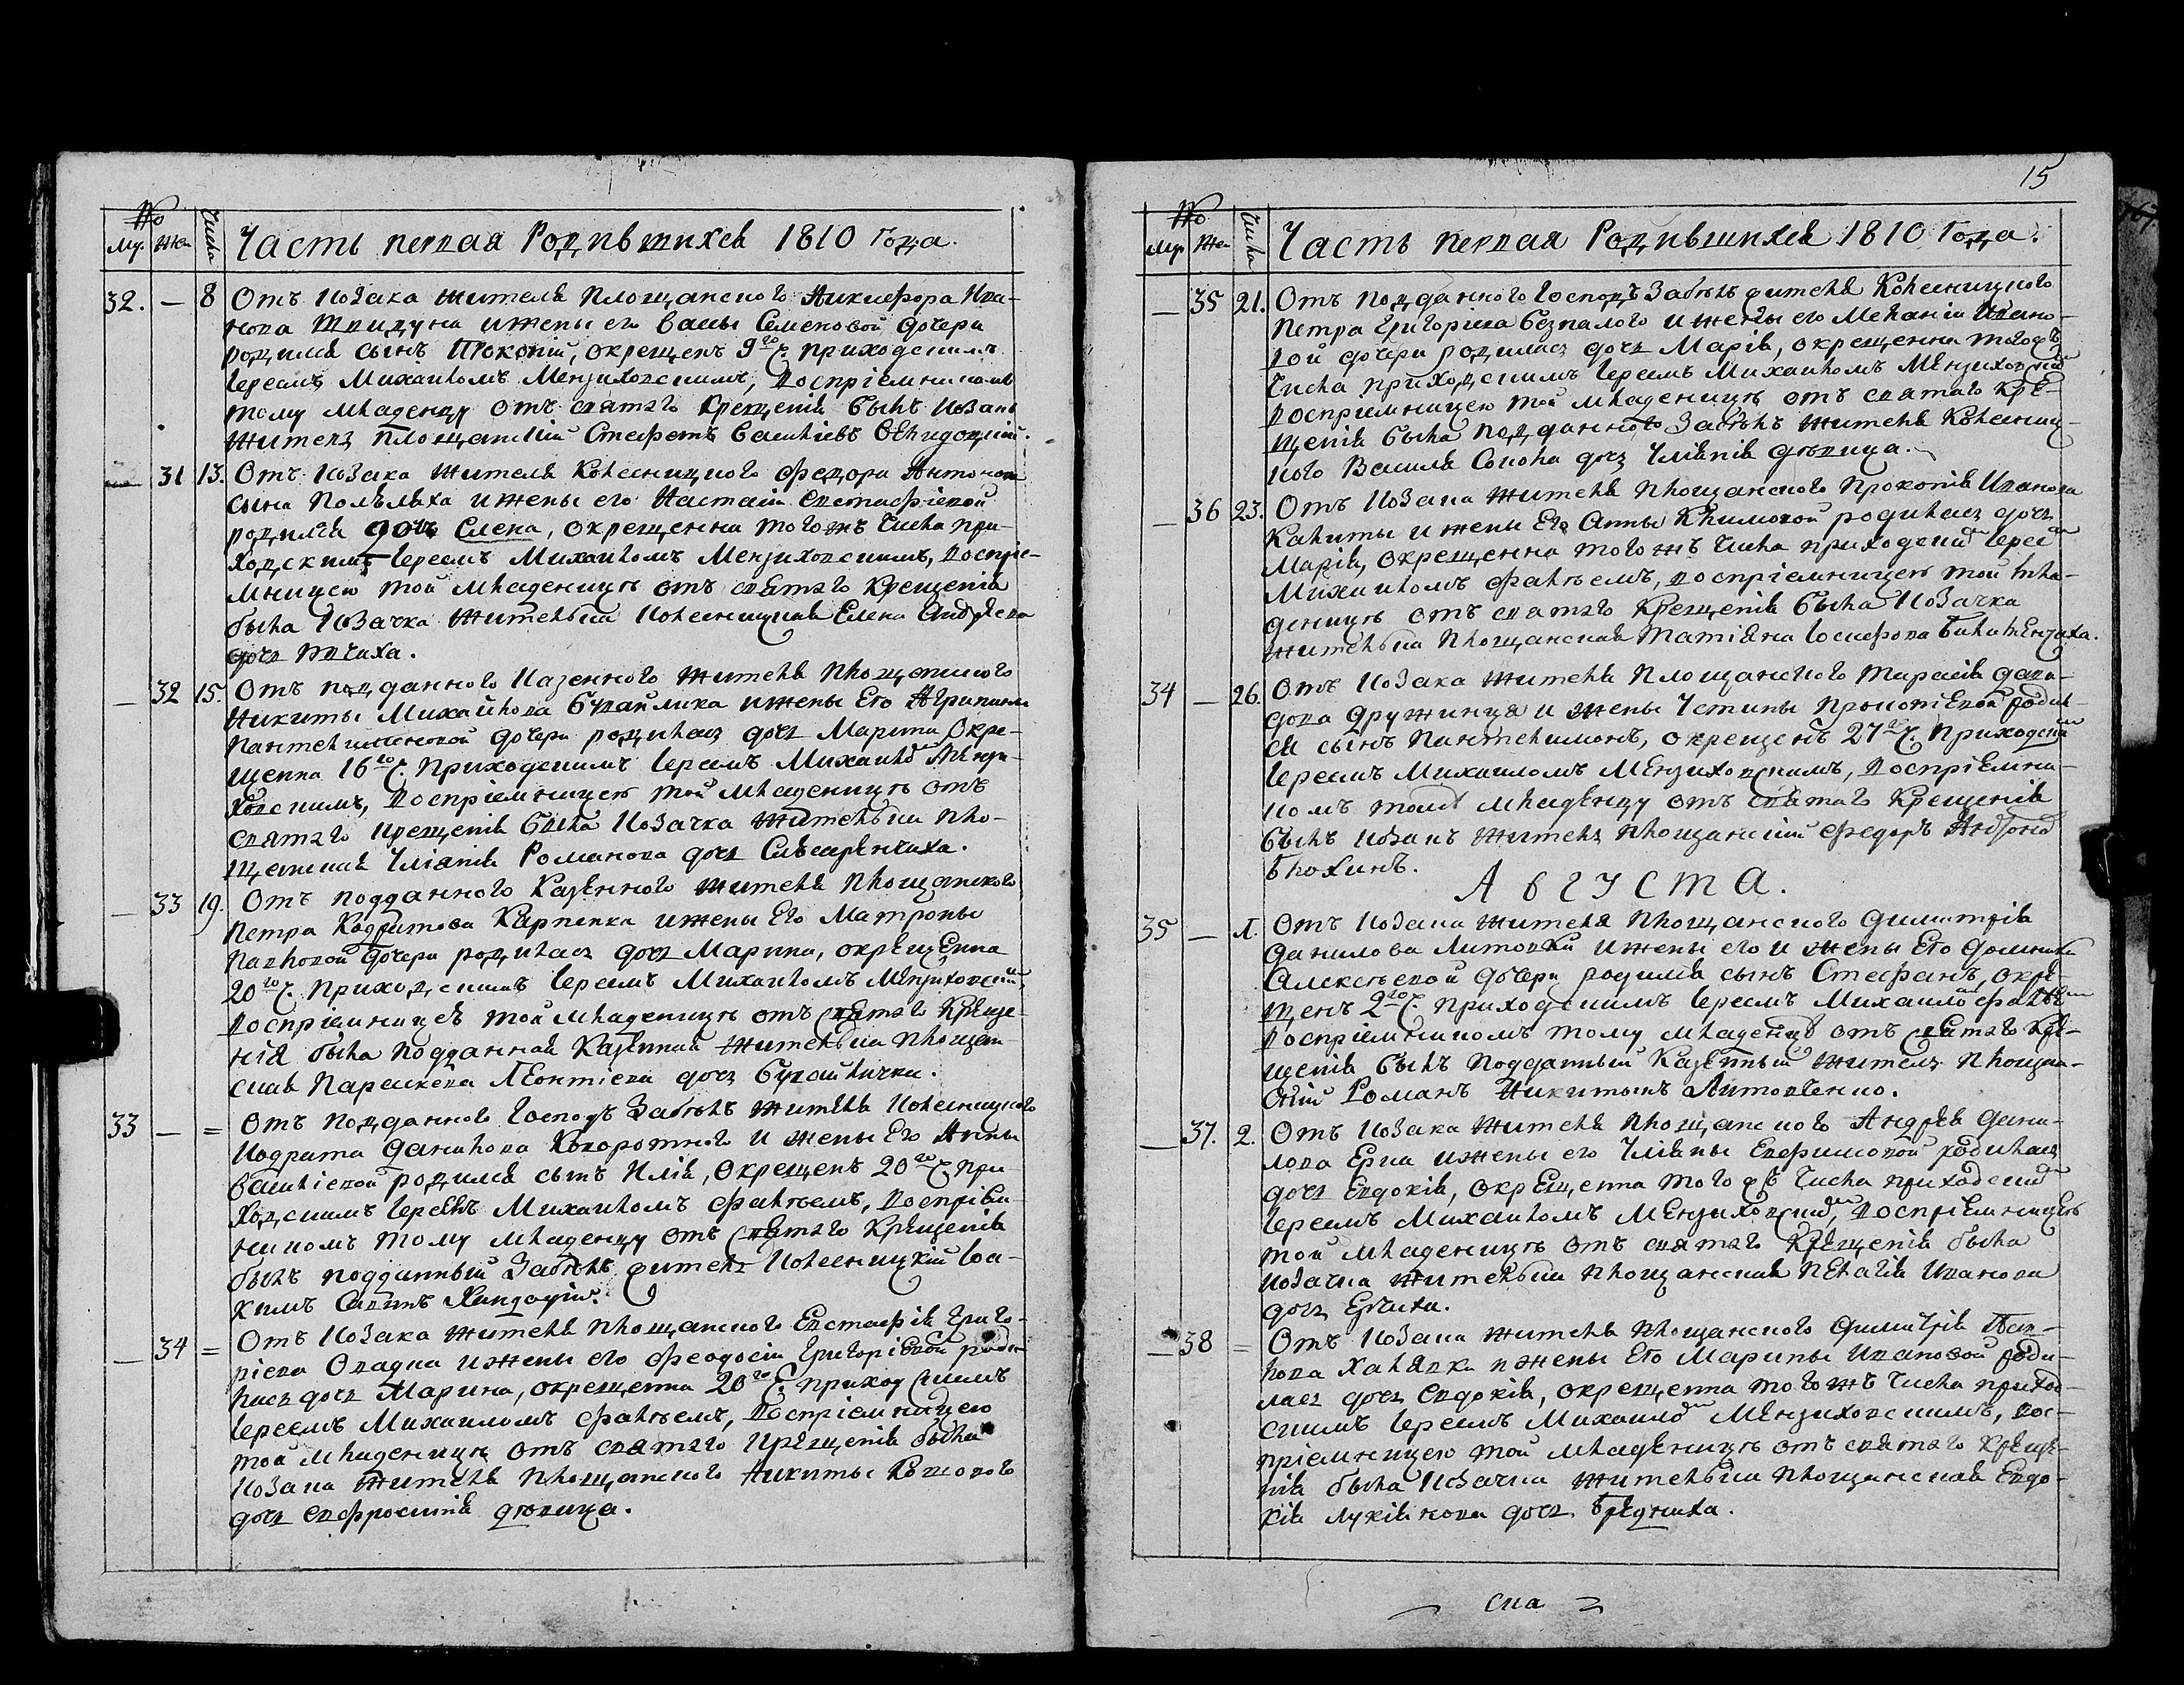 №
Му. Жен Числа Часть первая Родившихся 1810 Года.
32. — 8 Отъ козака жителя Площанского Никифора Ива-
нова Швидуна и жены его Васы Семеновой дочери
родился сынъ Прокопій, окрещенъ 9го ч. приходскимъ
Іереемъ Михаиломъ Мензиховскимъ, воспріемникомъ
тому младенцу отъ святаго крещенія былъ козакъ
житель Площанскій Стефанъ Василіевъ
31 13. Отъ козака жителя Колесницкого Федора Антонова
сына и жены его Настасіи Евстафіевой
родился дочь Елена, окрещенна того жъ числа при-
ходскимъ Іереемъ Михаиломъ Мензиховскимъ, воспріе-
мницею той младеницѣ отъ святаго крещенія
была козачка жителька Колесницкая Елена Андрѣева
дочь Ткчиха.
— 32 15. Отъ подданного казенного жителя Площанского
Никиты Михайлова и жены Его Агрипины
Пантелимоновой дочери родилась дочь Марина окре-
щенна 16го ч. приходскимъ Іереемъ Михаило Мензи-
ховскимъ, воспріемницею той младеницѣ отъ
святаго крещенія была козачка жителька Пло-
щанская Уліянія Романова дочь Слѣсаренчиха.
— 33 19. Отъ подданного Казенного жителя Площанского
Петра Кодратова Карпенка и жены Его Матроны
Павловой дочери родилась дочь Марина, окрещенна
20го ч. приходскимъ Іереемъ Михаиломъ Мензиховскимъ
воспріемницею той младеницѣ отъ святаго Креще-
нія была подданная Казенная жителька Площан-
ская Параскева Леонтіева дочь
33 — = Отъ подданного Господъ Забѣлъ жителя Колесницкого
Кодрата Данилова Коворотного и жены Его Анны
Василіевой родился сынъ Илія, окрещенъ 20го ч. при-
ходскимъ Іереемъ Михаиломъ Фалѣемъ, воспріем-
никомъ тому младенцу отъ святаго Крещенія
былъ подданный Забѣлъ житель Колесницкій Іоа-
кимъ Савинъ
— 34 = Отъ козака жителя Площанского Евстафія Григо-
ріева и жены его Феодосіи Григоріевой роди-
лась дочь Марина, окрещенна 20го ч. приходскимъ
Іереемъ Михаиломъ Фалѣемъ, воспріемницею
той младеницѣ отъ святаго крещенія была
козака жителя Площанского Никиты
дочь Евфросинія дѣвица.
15
№
Му Жен Числа Часть первая Родившихся 1810 Года.
— 35 21. Отъ подданного Господъ Забѣлъ жителя Колесницкого
Петра Григоріева Безпалого и жены его Меланіи Ивано-
вой дочери родилась дочь Марія, окрещенна тогожъ
числа приходскимъ Іереемъ Михаиломъ Мензиховскимъ
воспріемницею той младеницѣ отъ святаго кре-
щенія была подданного Забѣлъ жителя Колесниц-
кого Василя Сокола дочь Уліянія дѣвица.
— 36 23. Отъ козака жителя Площанского Прокопія Иванова
Калиты и жены Его Анны Климовой родилась дочь
Марія, окрещенна того жъ числа приходским Іереем
Михаиломъ Фалѣемъ, воспріемницею той мла-
деницѣ отъ святаго Крещенія была козачка
жителька Площанская Татіяна Іосифова
34 — 26. Отъ козака жителя Площанского Тарасія Дави-
дова Дружинця и жены Устины Прокопіевой родил-
ся сынъ Пантелимонъ, окрещенъ 27го ч. приходским
Іереемъ Михаиломъ Мензиховскимъ, воспріемни-
комъ тому младенцу отъ святаго Крещенія
былъ козакъ житель Площанскій Федоръ
Блохинъ.
Августа.
35 — 1. Отъ козака жителя Площанского Димитрія
Данилова Литовки и жены его и жены Его Домники
Алексѣевой дочери родился сынъ Стефанъ, окре-
щенъ 2го ч. приходскимъ Іереемъ Михаилом Фалѣем
воспріемникомъ тому младенцу отъ святаго Кре-
щенія былъ подданный Казенный житель Площан-
скій Романъ Никитынъ Литовченко.
— 37. 2. Отъ козака жителя Площанского Андрея Дани-
лова и жены его Уліяны Евфимовой родилась
дочь Евдокія, окрещенна того жъ числа приходским
Іереемъ Михаиломъ Мензиховским, воспріемницею
той младеницѣ отъ святаго Крещенія была
козачка жителька Площанская Пелагія Иванова
дочь
— 38 = Отъ козака жителя Площанского Димитрія Пав-
лова Халявки и жены Его Марины Ивановой роди-
лась дочь Евдокія, окрещенна того жъ числа приход-
скимъ Іереемъ Михаилом Мензиховскимъ, вос-
пріемницею той младеницѣ отъ святаго Креще-
нія была козачка жителька Площанская Евдо-
кія Лукіянова дочь Бредниха.